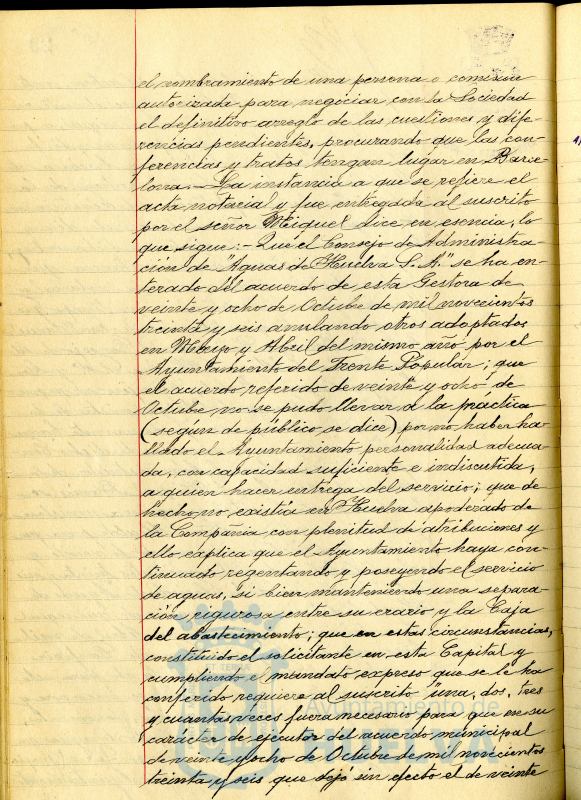 el nombramiento de una persona o comisión
autorizada para negociar con la Sociedad
el definitivo arreglo de las cuestiones y dife-
rencias pendientes, procurando que las con-
ferencias y tratos tengan lugar en Barce-
lona.- La instancia a que se refiere el
acta notarial y fue entregada al suscrito
por el señor Miquel dice en esencia, lo
que sigue:- Que el Consejo de Administra-
ción de "Aguas de Huelva S.A." se ha en-
terado del acuerdo de esta Gestora de
veinte y ocho de Octubre de mil novecientos
treinta y seis anulando otros adoptados
en Marzo y Abril del mismo año por el
Ayuntamiento del Frente Popular; que
el acuerdo referido de veinte y ocho de
Octubre no se pudo llevar a la práctica
(segun de público se dice) por no haber ha-
llado el Ayuntamiento personalidad adecua-
da, con capacidad suficiente e indiscutida,
a quien hacer entrega del servicio; que de
hecho no existía en Huelva apoderado de
la Compañia con plenitud de atribuciones y
ello explica que el Ayuntamiento haya con-
tinuado regentando y poseyendo el servicio
de aguas, si bien manteniendo una separa-
ción rigurosa entre su erario y la Caja
del abastecimiento; que en estas circunstancias,
constituido el solicitante en esta Capital y
cumpliendo el mandato expreso que se le ha
conferido requiere al suscrito "una, dos, tres
y cuantas veces fuera necesario para que en su
carácter de ejecutor del acuerdo municipal
de veinte y ocho de Octubre de mil novecientos
treinta y seis que dejó sin efecto el de veinte
Ayuntamiento de
HUELVA